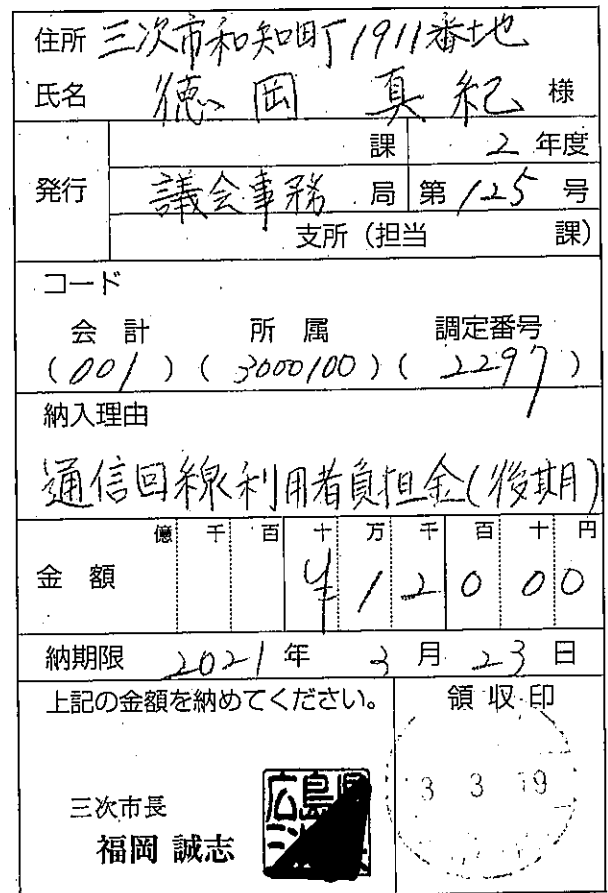 住所 三次市和知町1911番地
氏名 徳岡 真紀 様
課 2年度
発行 議会事務局 第125号
支所(担当 課)
コード
会計 所属 調定番号
(001)(3000100)(2297)
納入理由
通信回線利用者負担金(後期)
億 千 百 十 万 千 百 十 円
金額 ¥12000
納期限 2021年3月23日
上記の金額を納めてください。 領収印
3 3 19
三次市長
福岡 誠志
広島県